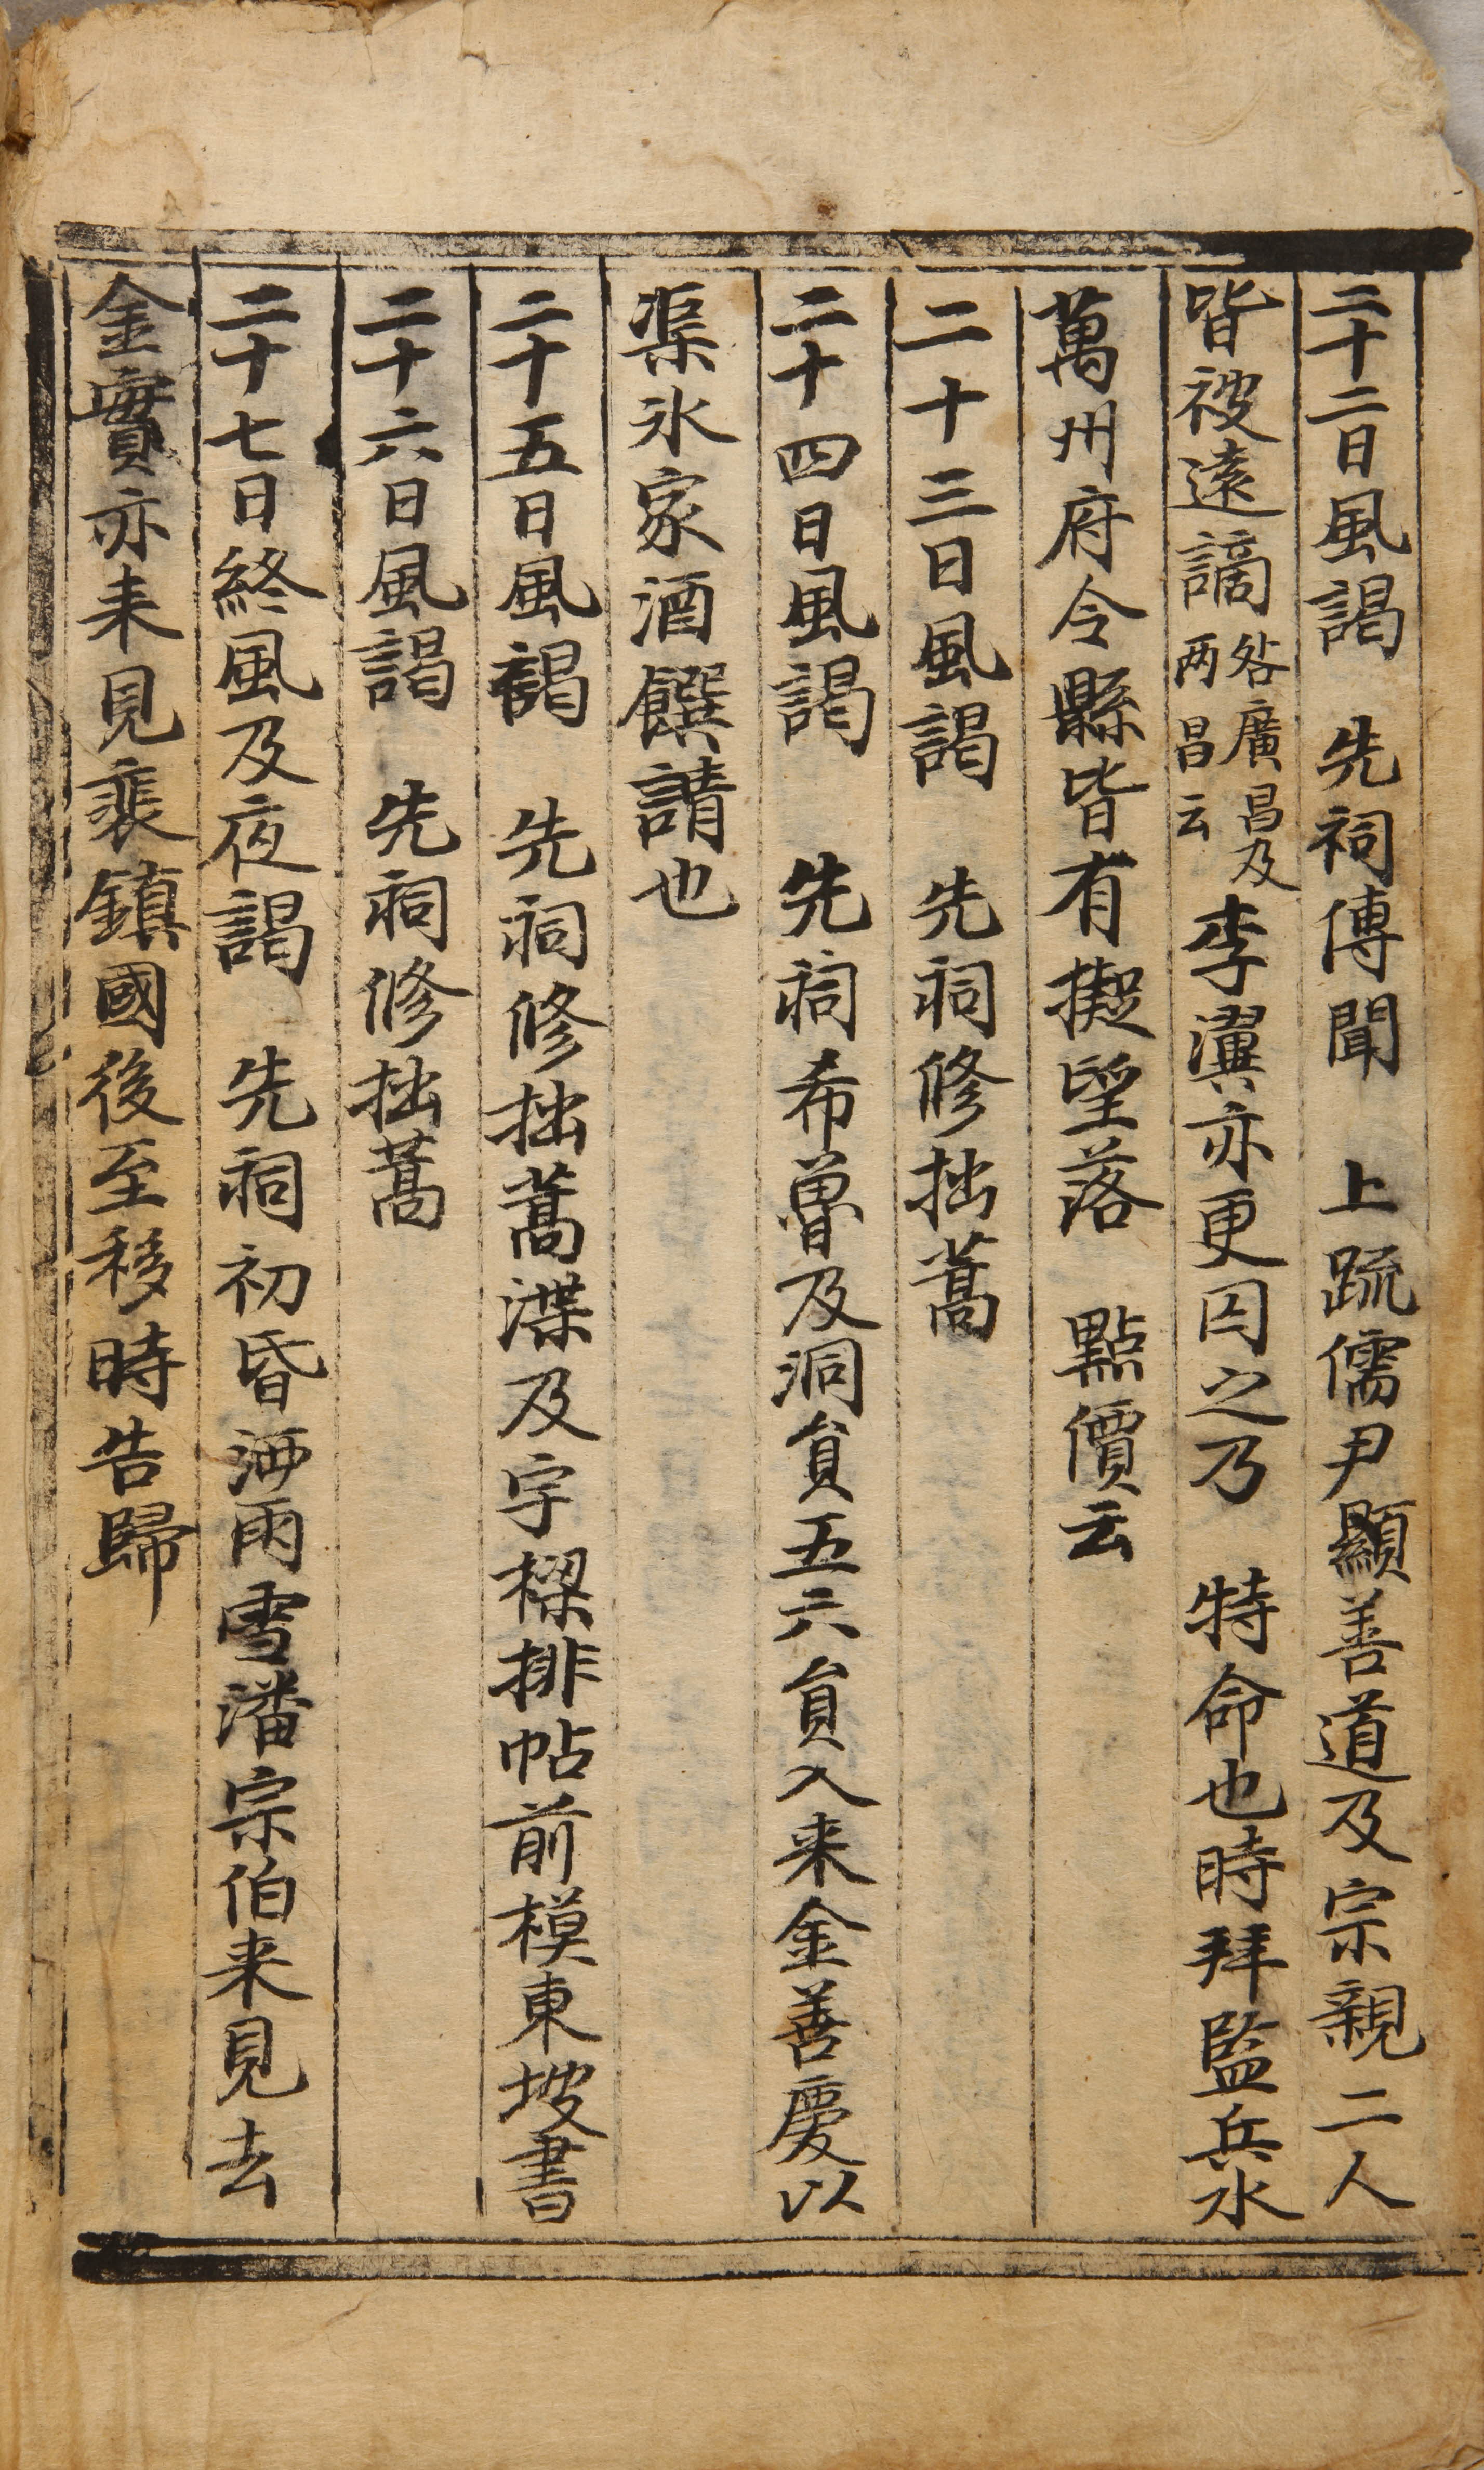 二十二日風謁　先祠傳聞　上疏儒尹顯善道及宗親二人
皆被遠謫咎廣昌及两昌云李瀷亦更囚之乃　特命也時拜監兵水
萬州府令縣皆有擬望落　點價云
二十三日風謁　先祠修拙藁
二十四日風謁　先祠希曾及洞貟五六貟入来金善慶以
渠氷家酒饌請也
二十五日風謁　先祠修拙藁渫及宇樑排帖前模東坡書
二十六日風謁　先祠修拙藁
二十七日終風及夜謁　先祠初昏洒雨雪潘宗伯来見去
金實亦来見裵鎮國後至移時告歸